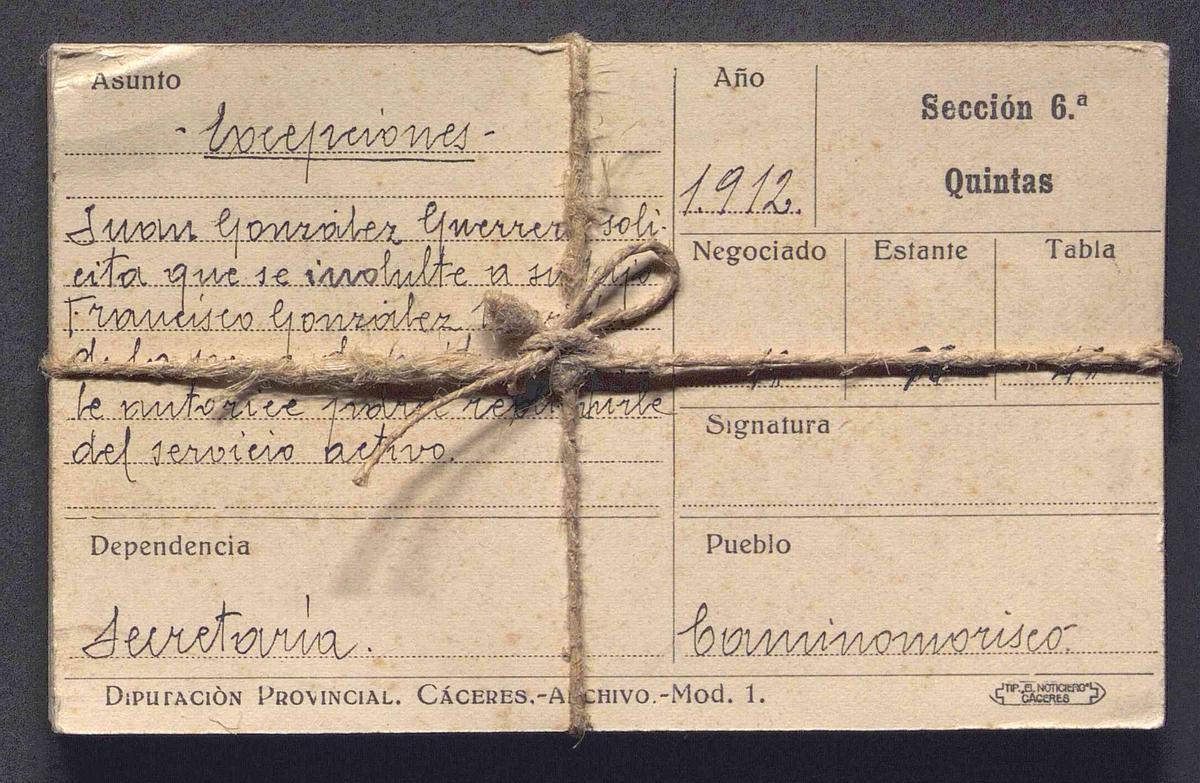 Asunto
- Excepciones -
Juan González Guerrero soli-
cita que se indulte a su hijo
Francisco González
de la
le autorice para
del servicio activo.
Dependencia
Secretaría.
Año
1.912.
Sección 6.ª
Quintas
Negociado Estante Tabla
Signatura
Pueblo
Caminomorisco.
DIPUTACIÒN PROVINCIAL. CÁCERES.-ARCHIVO.-MOD. 1.
TIP. "EL NOTICIERO"
CÁCERES